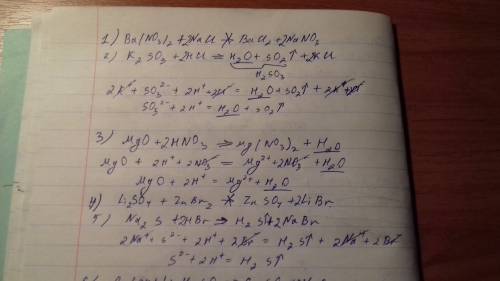 1) Ba(NO₃)₂ + 2NaCl ≠ BaCl₂ + 2NaNO₃
2) K₂SO₃ + 2HCl ⇒ H₂O + SO₂↑ + 2KCl
H₂SO₃
2K⁺ + SO₃²⁻ + 2H⁺ + 2Cl⁻ = H₂O + SO₂↑ + 2K⁺ + 2Cl⁻
SO₃²⁻ + 2H⁺ = H₂O + SO₂↑
3) MgO + 2HNO₃ ⇒ Mg(NO₃)₂ + H₂O
MgO + 2H⁺ + 2NO₃⁻ = Mg²⁺ + 2NO₃⁻ + H₂O
MgO + 2H⁺ = Mg²⁺ + H₂O
4) Li₂SO₄ + ZnBr₂ ≠ ZnSO₄ + 2LiBr
5) Na₂S + 2HBr ⇒ H₂S↑ + 2NaBr
2Na⁺ + S²⁻ + 2H⁺ + 2Br⁻ = H₂S↑ + 2Na⁺ + 2Br⁻
S²⁻ + 2H⁺ = H₂S↑